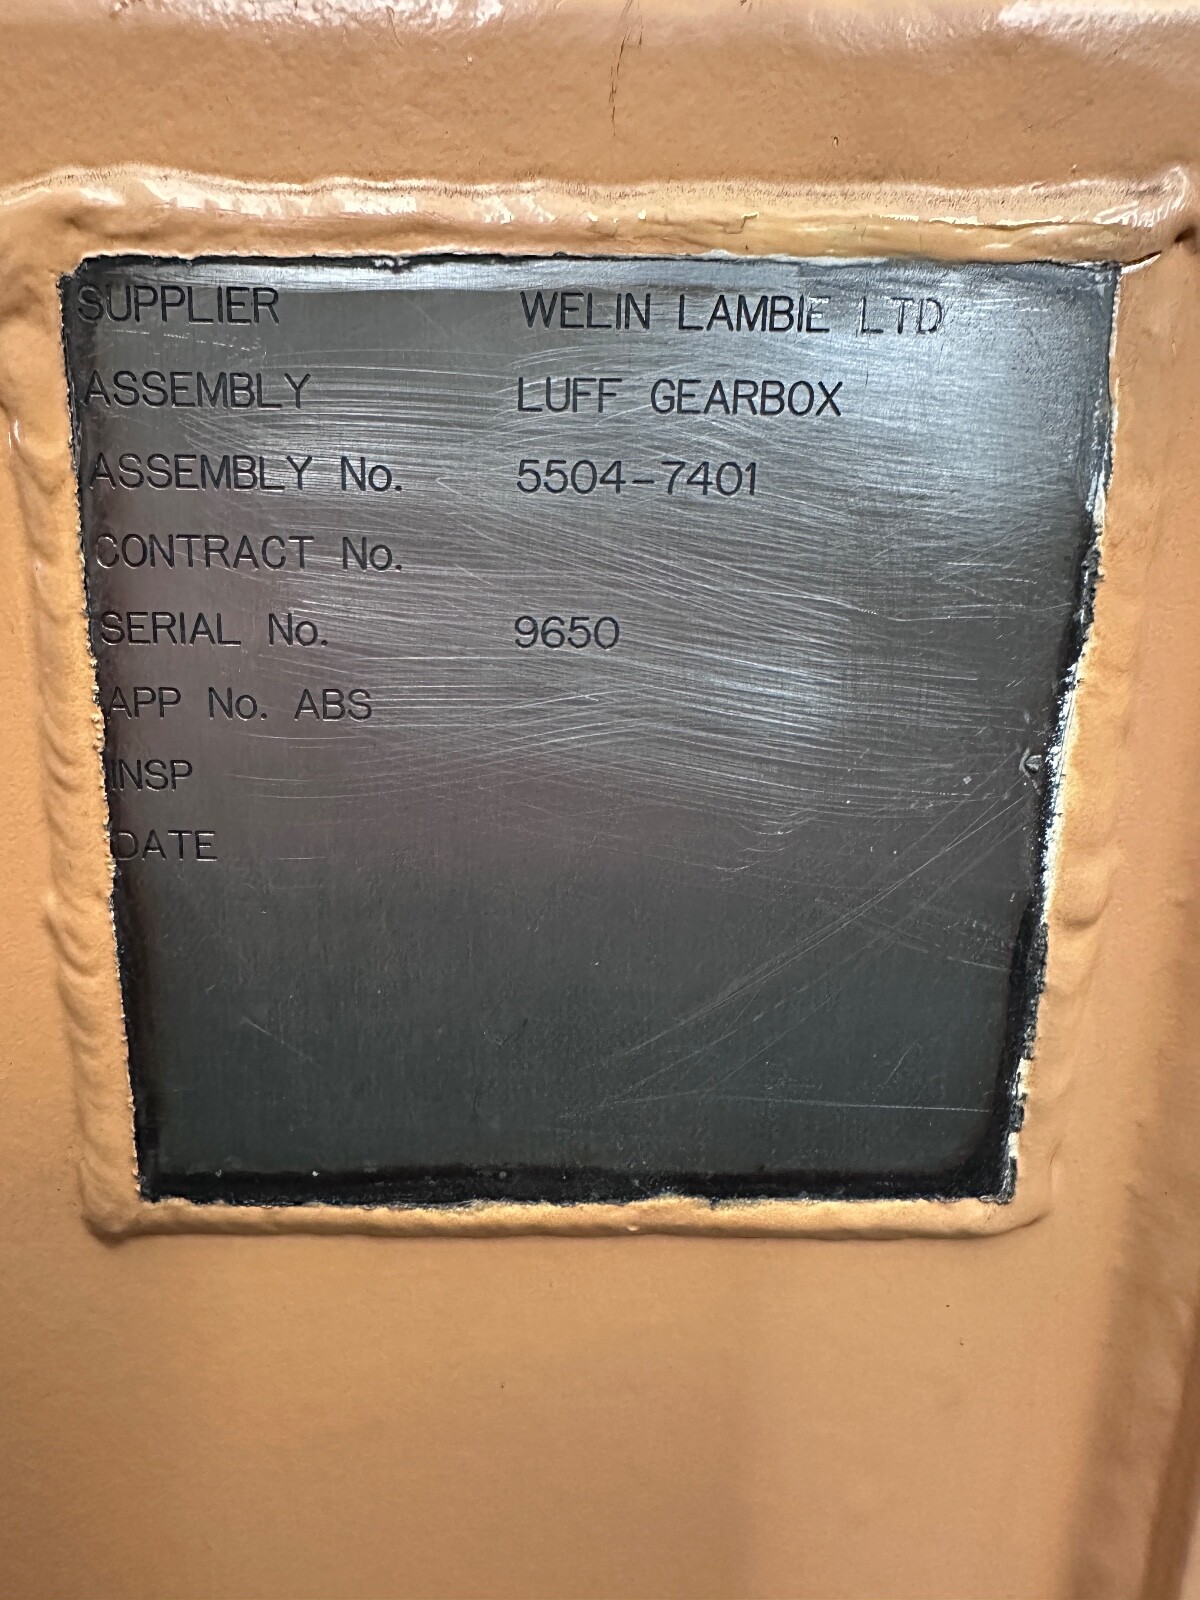 SUPPLIER WELIN LAMBIE LTD
ASSEMBLY LUFF GEARBOX
ASSEMBLY No. 5504-7401
CONTRACT No.
SERIAL No. 9650
APP No. ABS
INSP
DATE